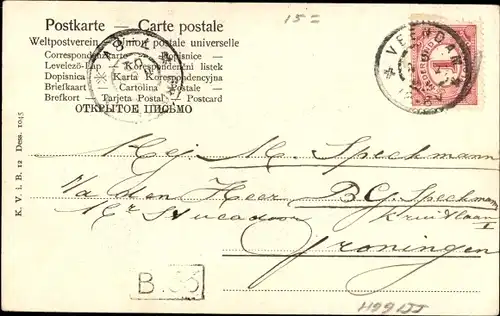 15=
Postkarte — Carte postale
Weltpostverein — Union postale universelle
Correspondenzkarte — Dopisnice —
Levelező-Lap — Korespondenční listek
Dopisnica ※ Karta Korespondencyjna
Briefkaart — Cartolina Postale —
Brefkort — Tarjeta Postal — Postcard
ОТКРЫТОЕ ПИСЬМО
VEENDAM
1
K. V. i. B. 12 Dess. 1045
Mej M. Speckmann
den Heer B G Speckmann
Mr Stucadoor Kruitlaan
Groningen
B.33